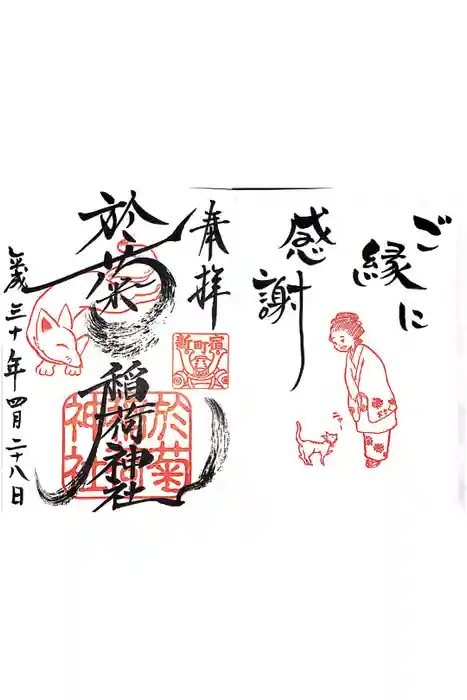 ご縁に
感謝
ニャー
奉拝
新町宿
於菊稲荷神社
於菊
神社
平成三十年四月二十八日